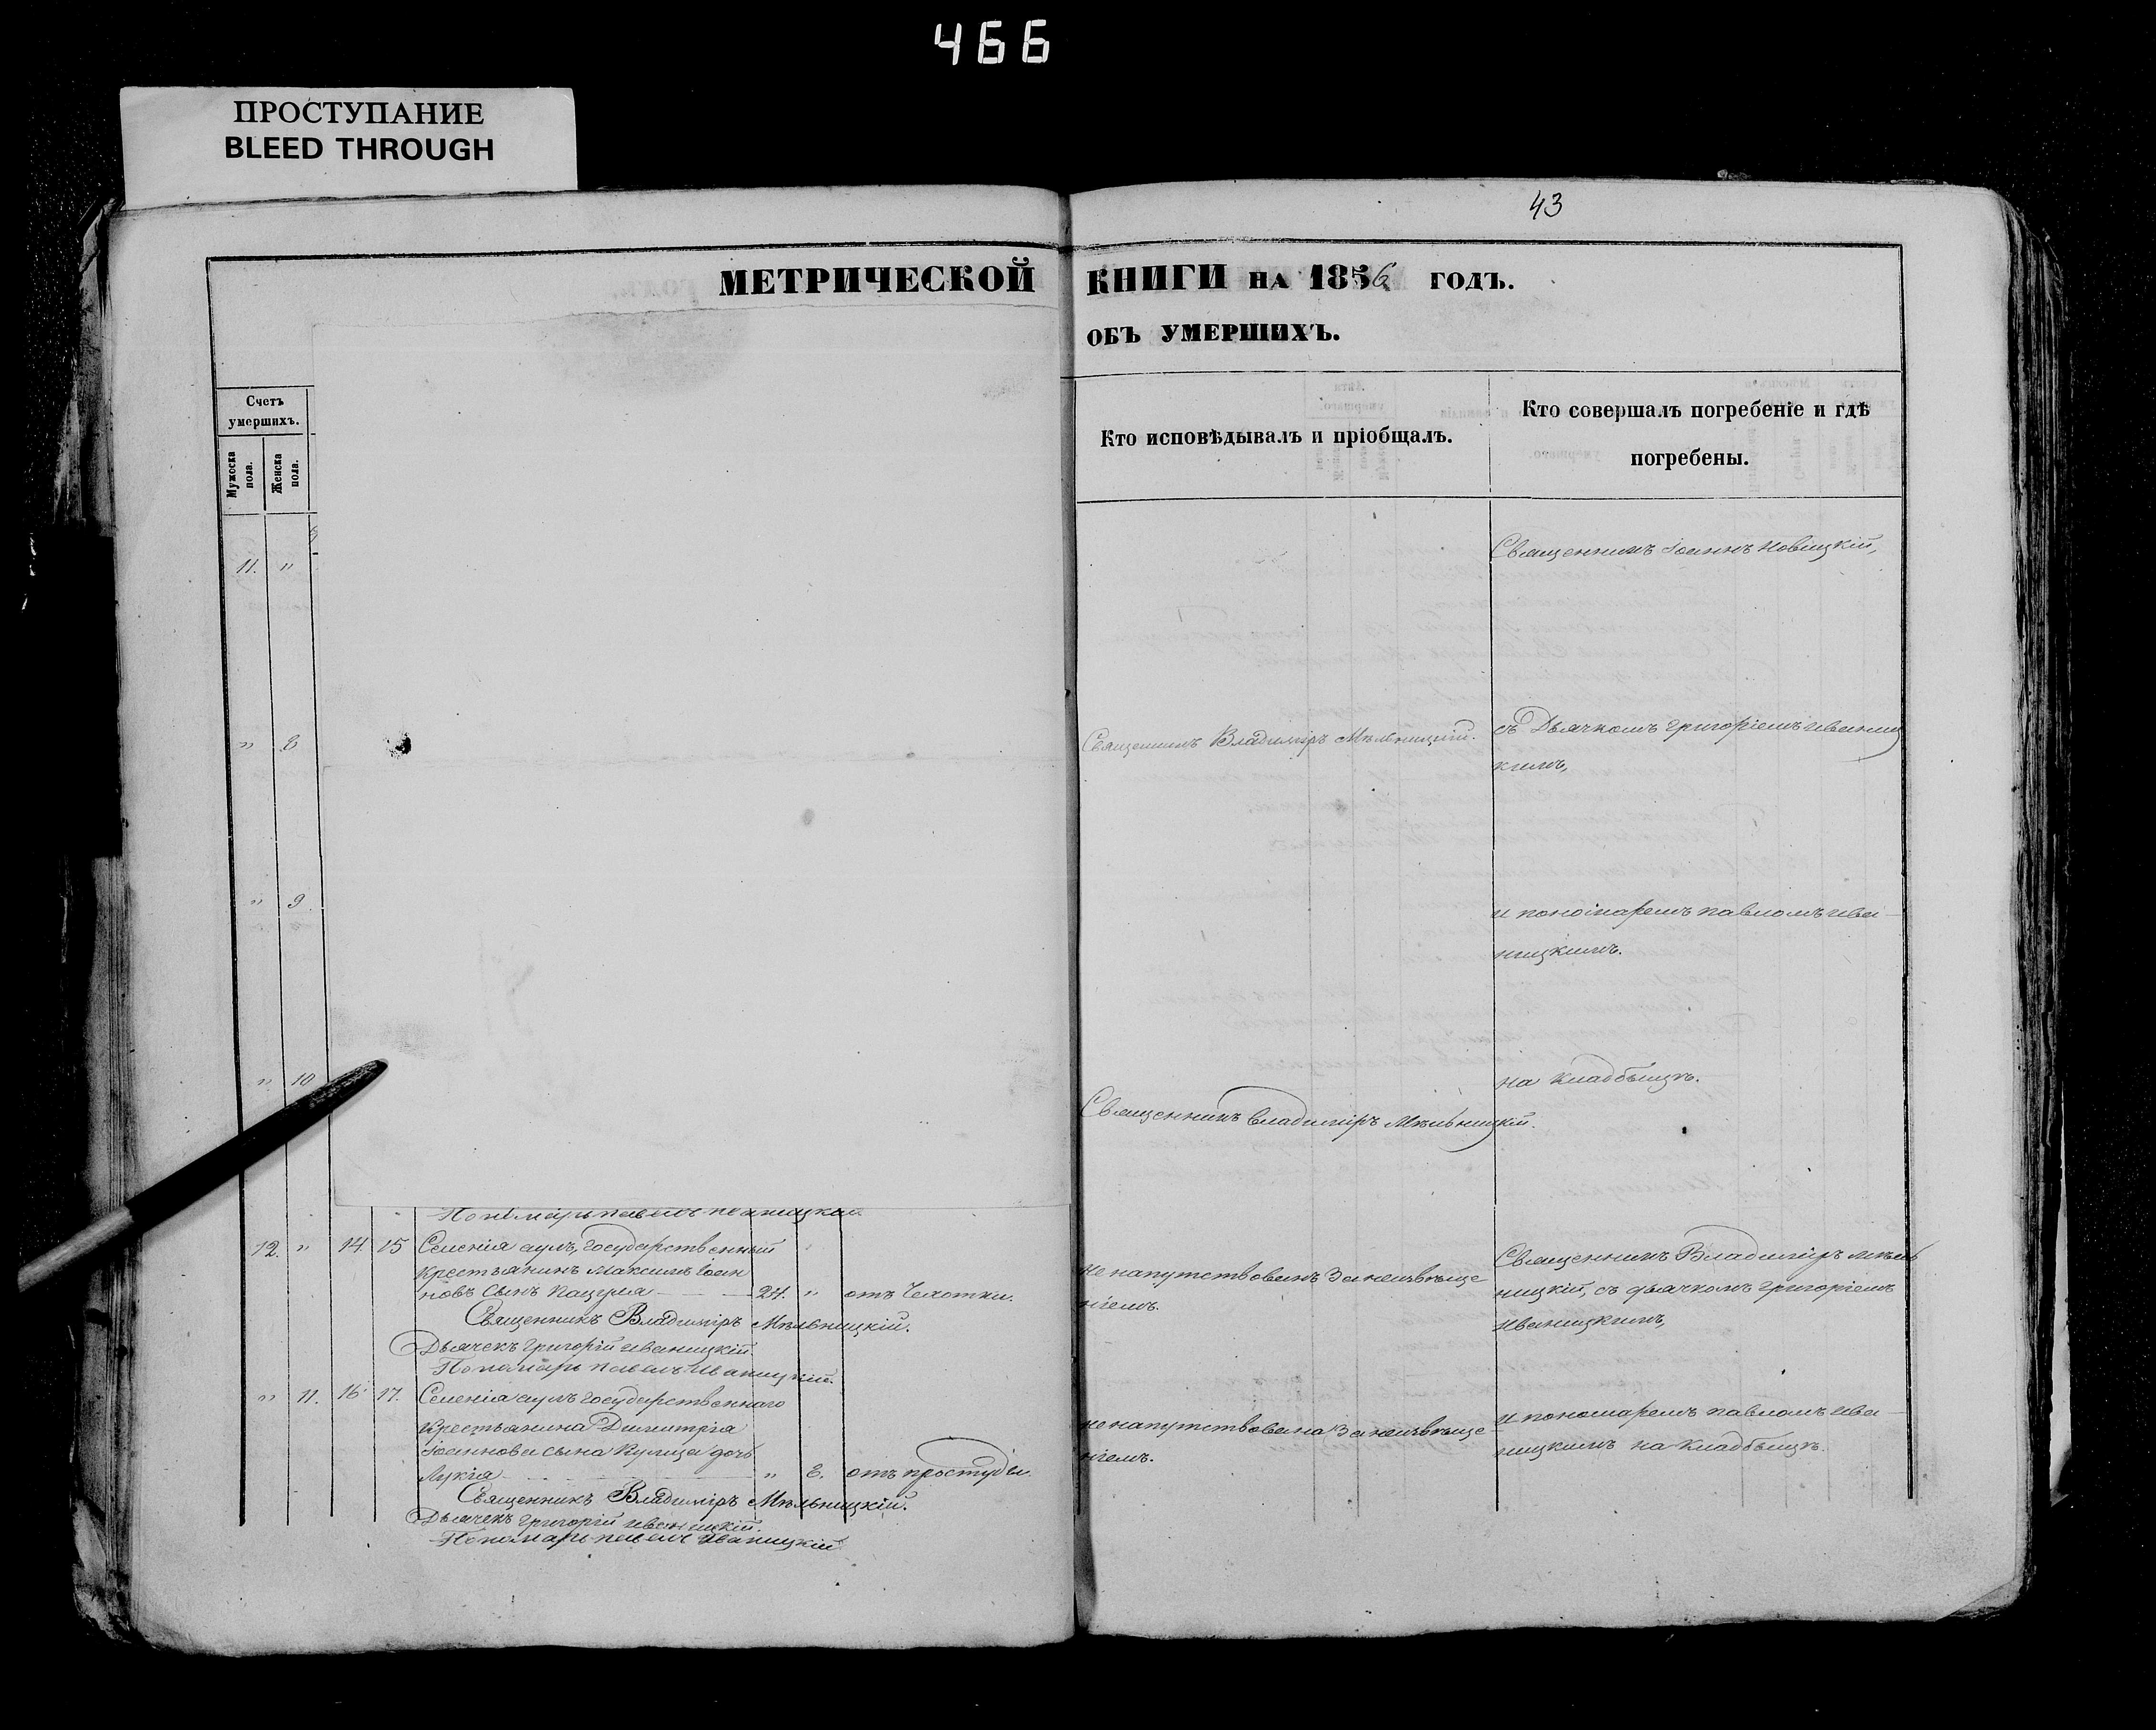 466
ПРОСТУПАНИЕ
BLEED THROUGH
43
МЕТРИЧЕСКОЙ КНИГИ НА 1856 ГОДЪ.
ОБЪ УМЕРШИХЪ.
Счетъ
умершихъ.
Мужоска
пола.
Женска
пола.
Кто исповѣдывалъ и пріобщалъ.
Кто совершалъ погребеніе и гдѣ
погребены.
11. "
Священникъ Іоаннъ Новицкій,
" 8
Священникъ Владиміръ Мѣльницкій.
съ Дьячкомъ Григоріемъ Иваниц
кимъ,
" 9
и пономаремъ павломъ Ива-
ницкимъ.
" 10
на кладбыщѣ.
Священникъ Владиміръ Мѣльницкій.
Пономарь павелъ Иваницкій
12. " 14. 15 Селенія аулъ, государственный
крестьянинъ Максимъ Іоан
новъ сынъ Кацума 24. " отъ Чехотки.
Священникъ Владиміръ Мѣльницкій.
Дьячекъ Григорій Иваницкій
Пономарь павелъ Иваницкій.
не напутствованъ За неизвѣще
ніемъ.
Священникъ Владиміръ Мѣль
ницкій, съ дьячкомъ Григоріемъ
Иваницкимъ,
" 11. 16 17. Селенія аулъ государственнаго
Крестьянина Димитрія
Іоаннова сына Кулица дочь
Лукія " 8. отъ простуды.
Священникъ Владиміръ Мѣльницкій.
Дьячекъ Григорій Иваницкій.
Пономарь павелъ Иваницкій
не напутствована За неизвѣще
ніемъ.
и пономаремъ павломъ Ива-
ницкимъ на Кладбыщѣ.